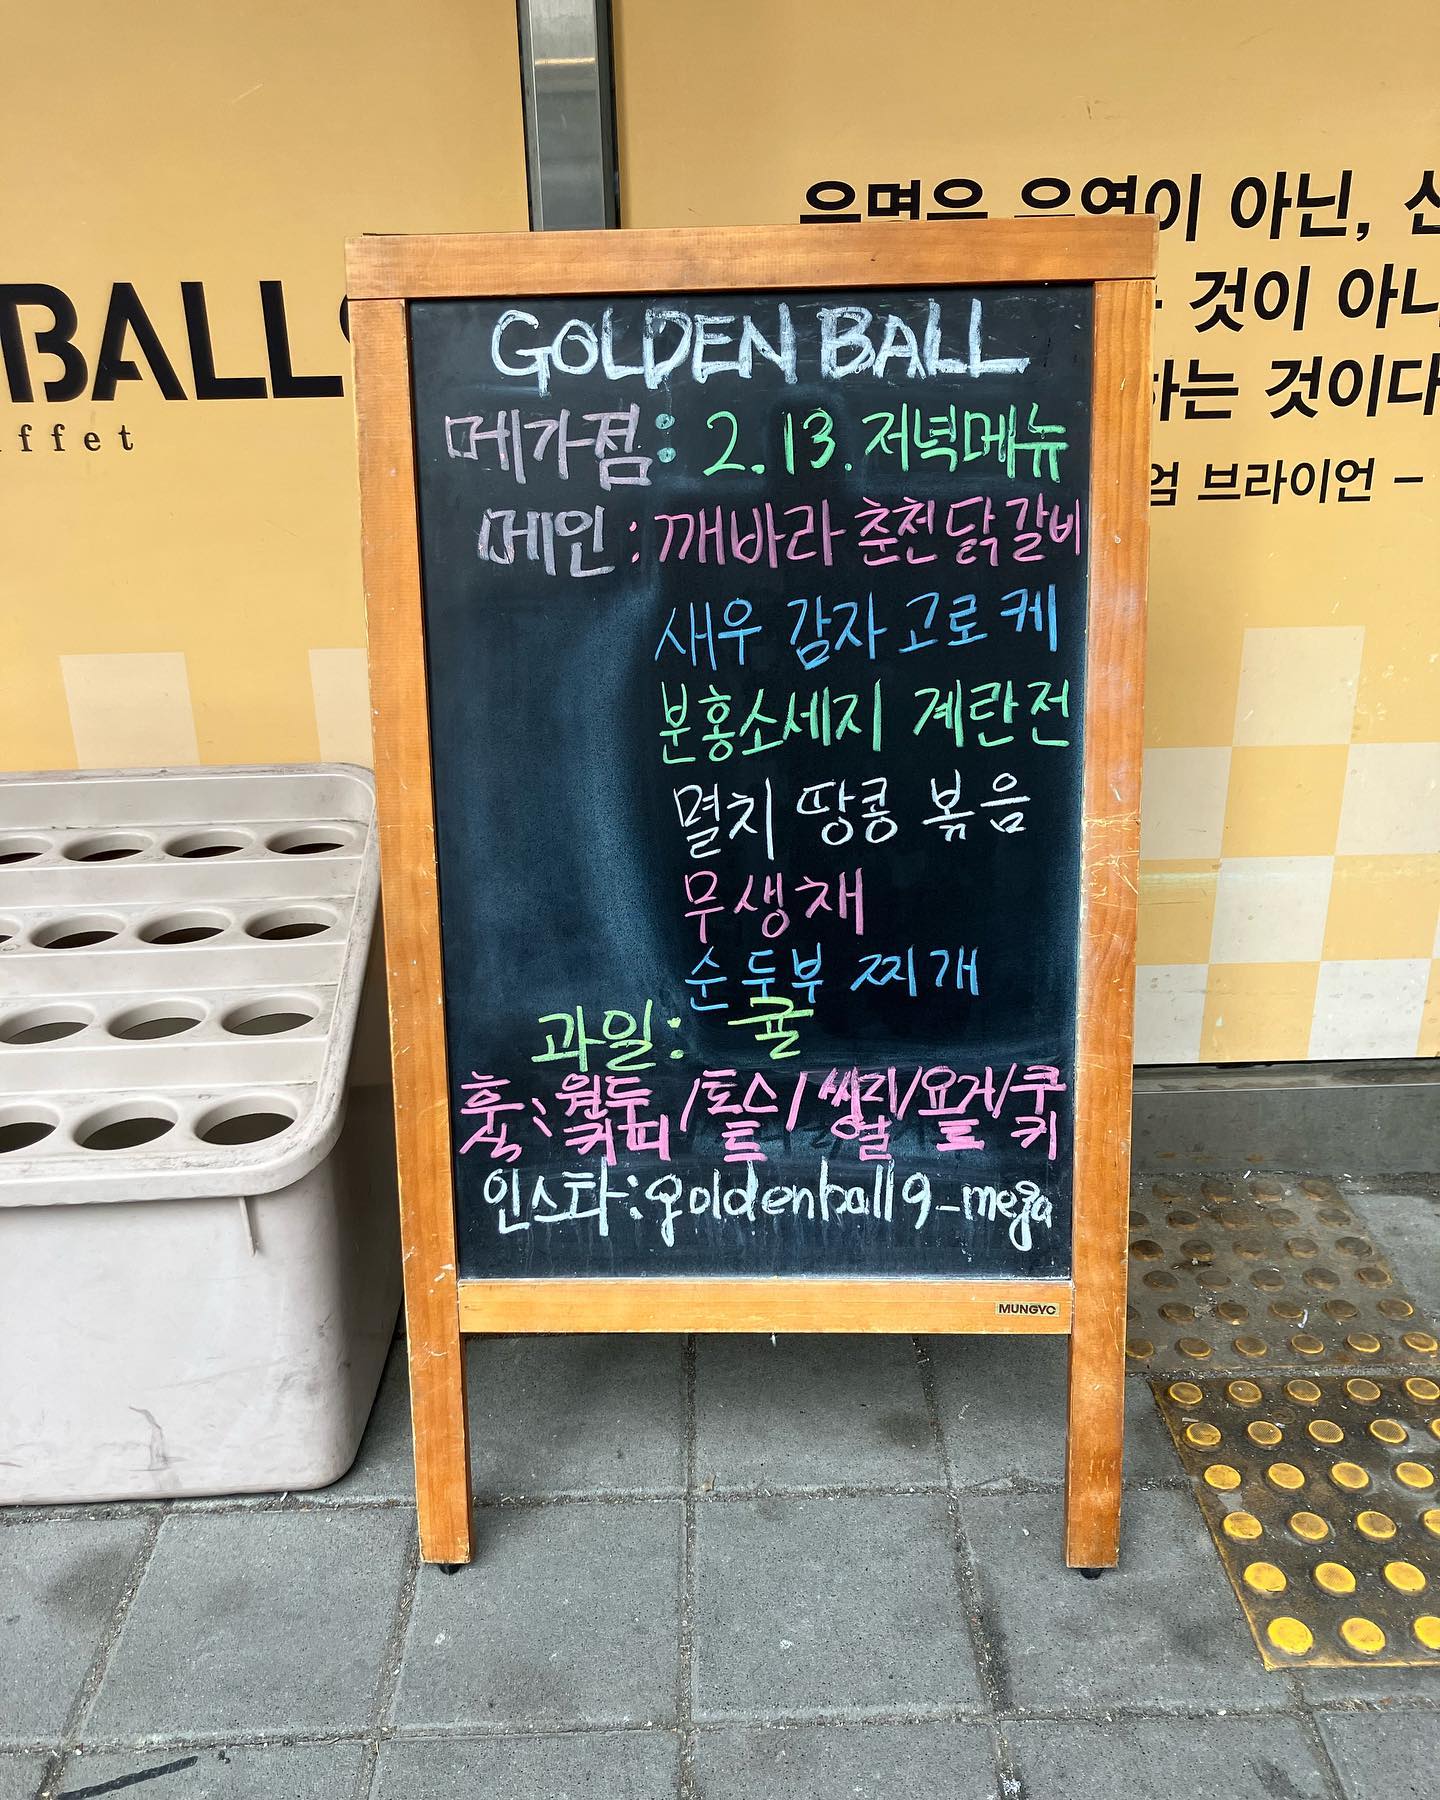 BALLS
ffet
운명은 우연이 아닌,
것이 아니
하는 것이다
엄 브라이언 –
GOLDEN BALL
메가점: 2.13. 저녁메뉴
메인: 깨바라 춘천닭갈비
새우 감자고로케
분홍소세지 계란전
멸치 땅콩 볶음
무생채
순두부 찌개
과일: 귤
후식: 원두커피/토스트/씨리얼/요거트/쿠키
인스타: goldenball9_mega
MUNGYO